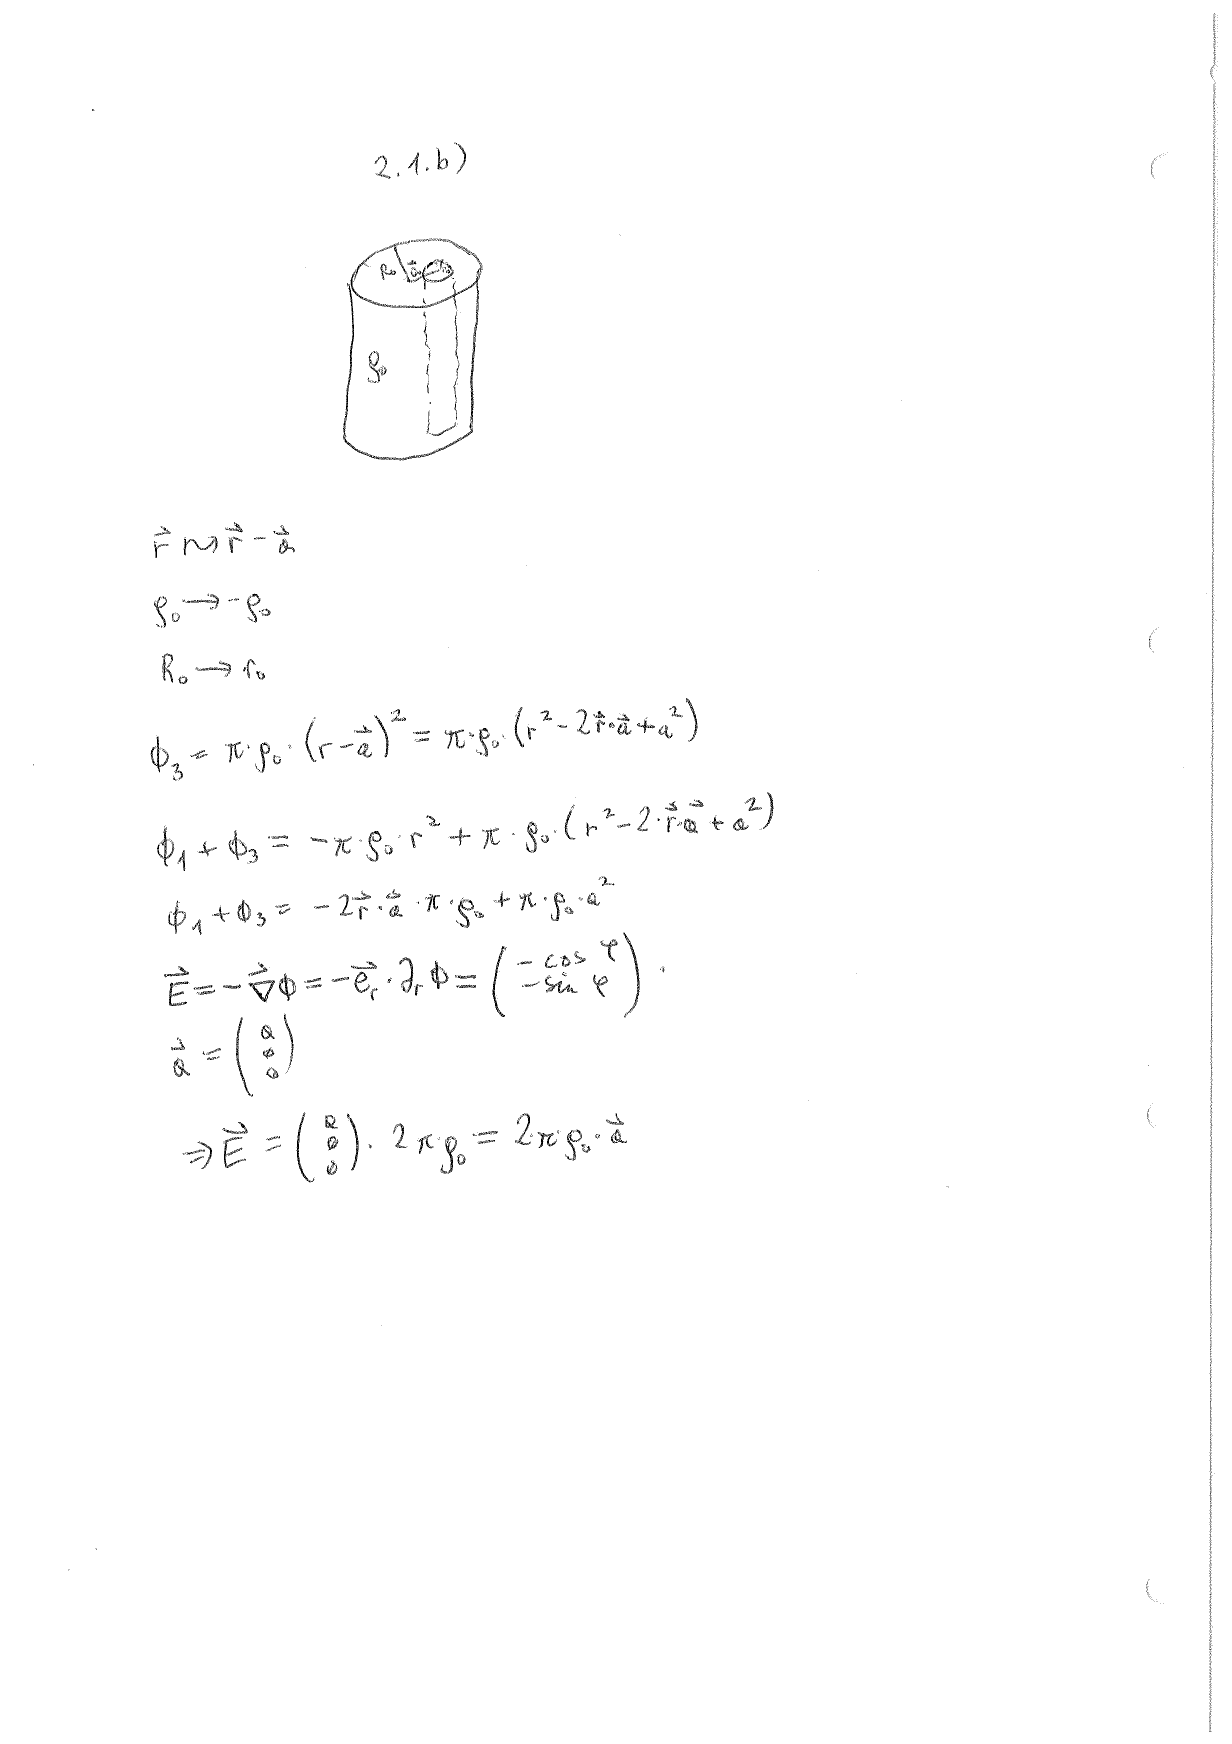 2.1.b)
R₀ a⃗ r₀
ρ₀
r⃗ ⇝ r⃗ - a⃗
ρ₀ → -ρ₀
R₀ → r₀
ϕ₃ = π·ρ₀·(r-a⃗)² = π·ρ₀·(r²-2r⃗·a⃗+a²)
ϕ₁ + ϕ₃ = -π·ρ₀·r² + π·ρ₀·(r²-2·r⃗·a⃗+a²)
ϕ₁ + ϕ₃ = -2r⃗·a⃗·π·ρ₀ + π·ρ₀·a²
E⃗ = -∇⃗ϕ = -e⃗ᵣ·∂ᵣϕ = (-cos φ
-sin φ) .
a⃗ = (a
0
0)
⇒ E⃗ = (a
0
0) · 2πρ₀ = 2π·ρ₀·a⃗